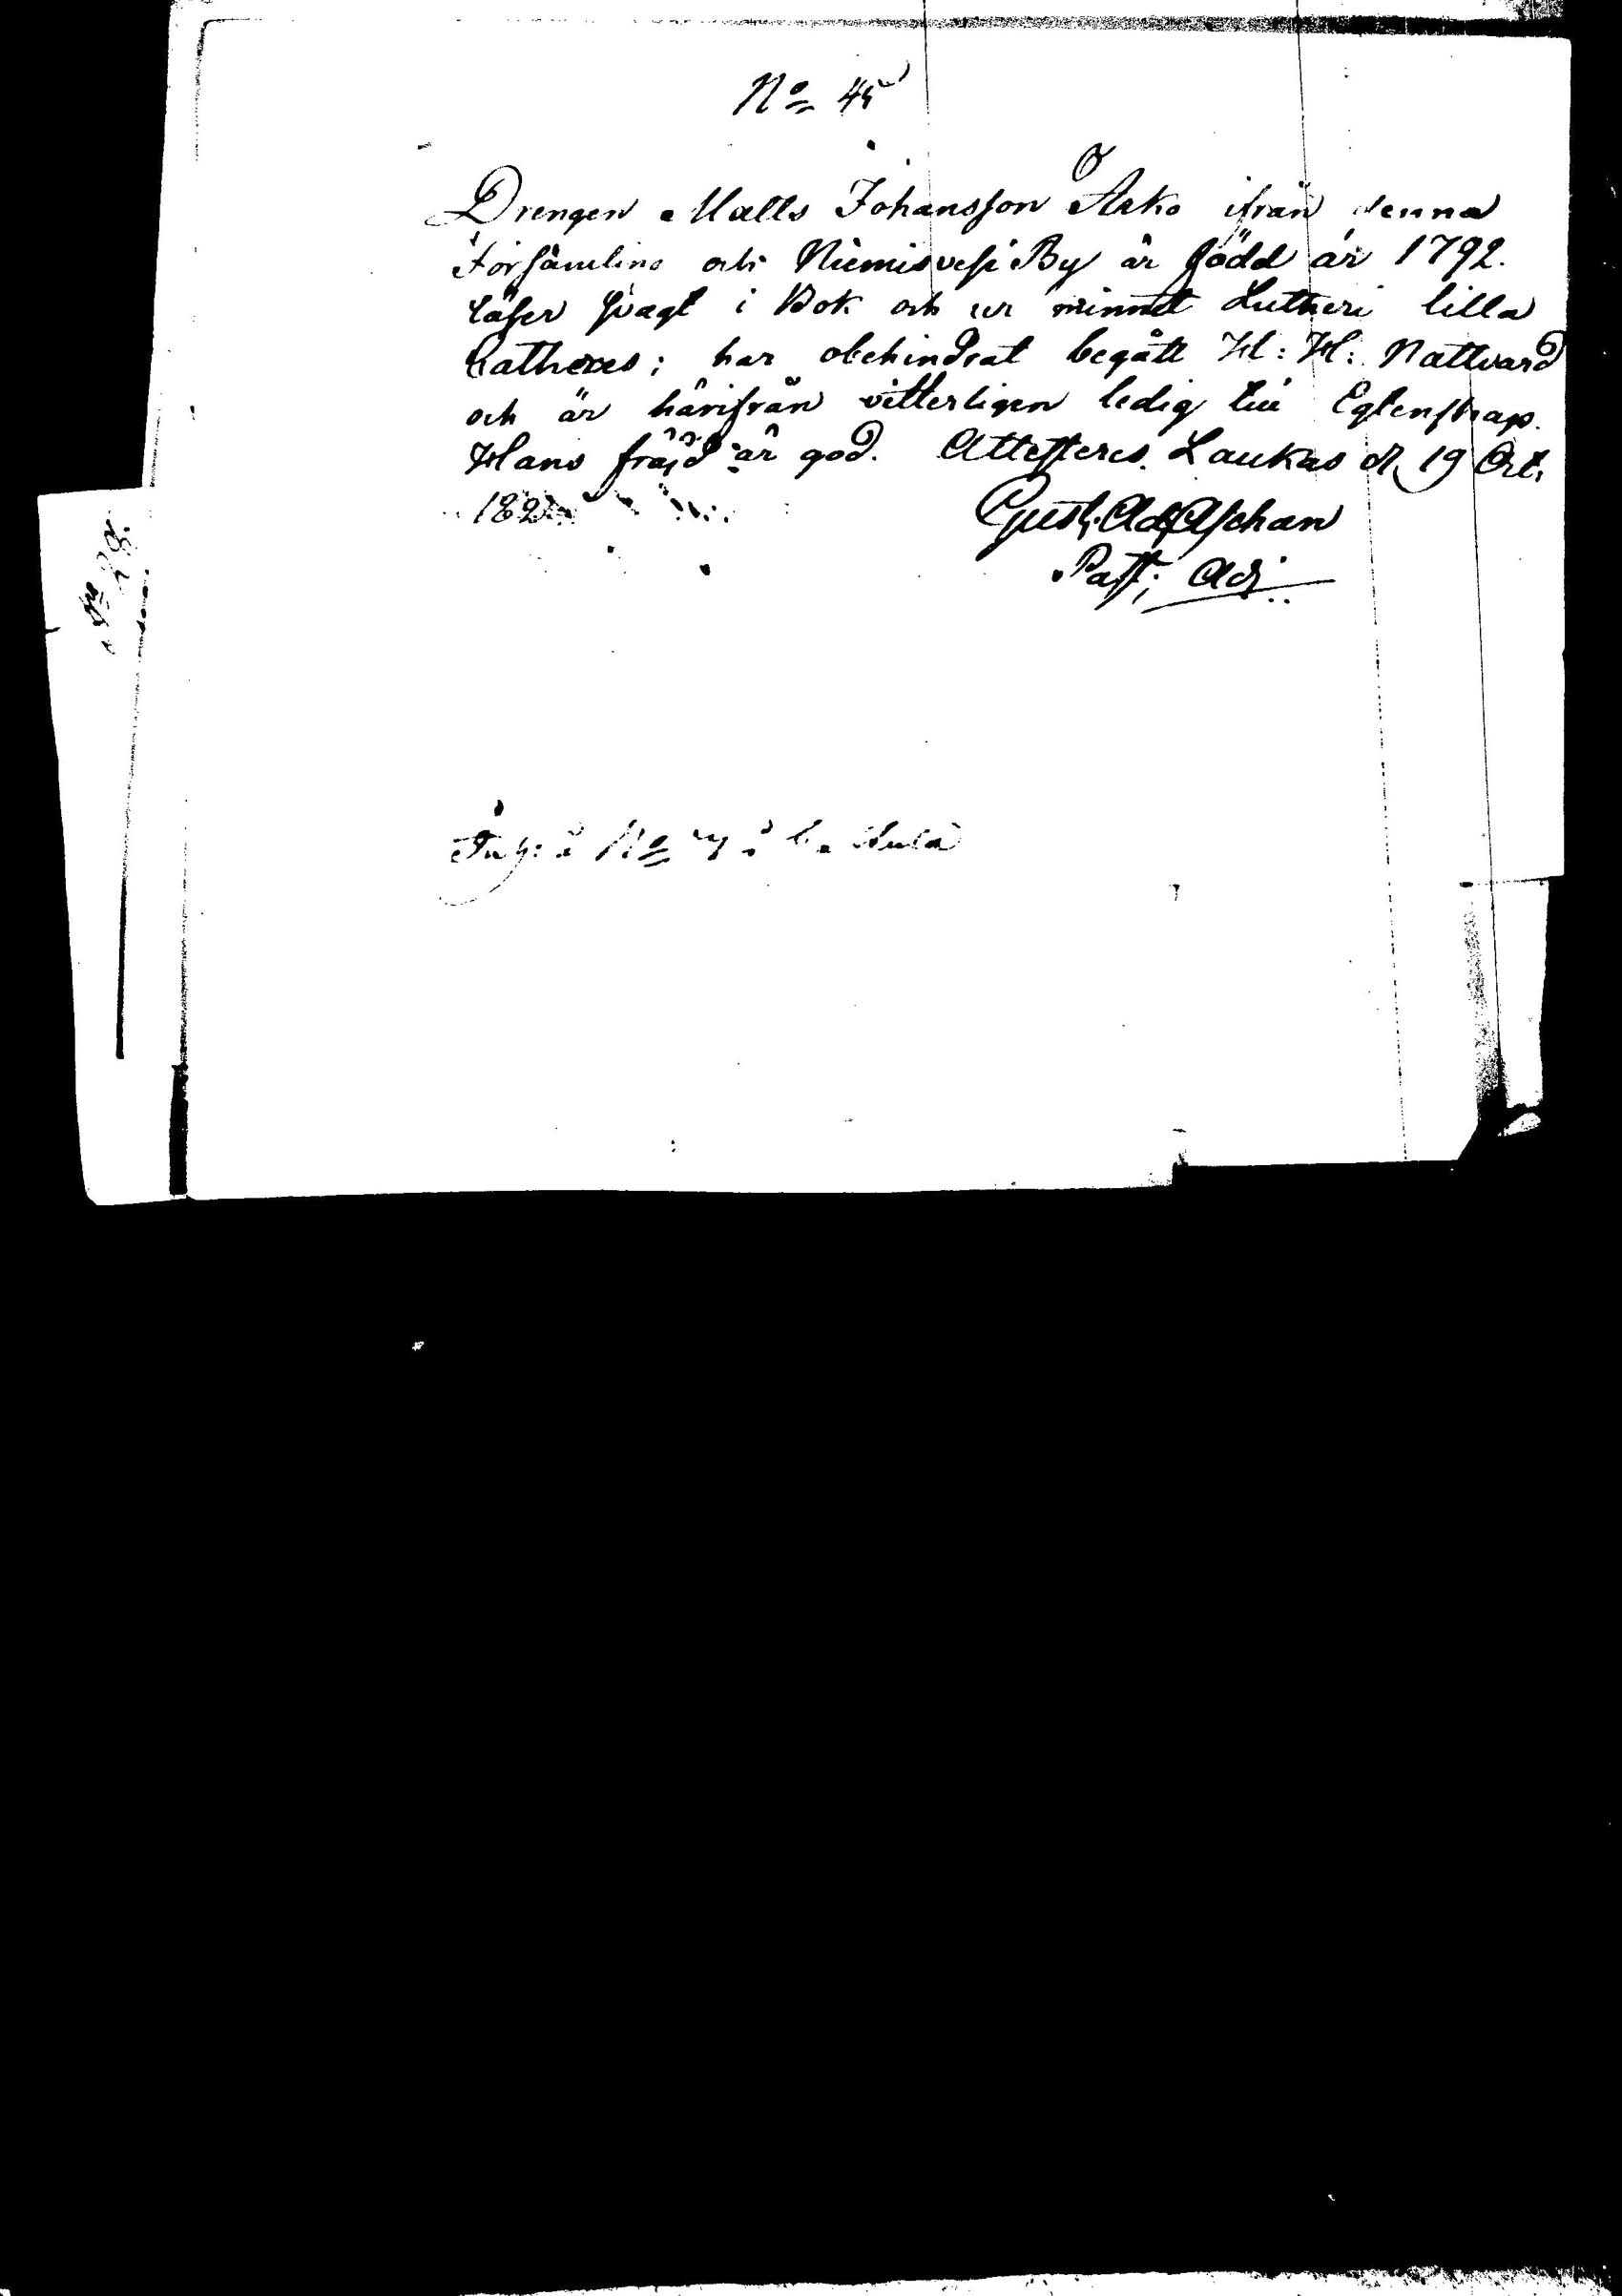 No 45
Drengen Matts Johansson Asko ifrån denna
Församling och Niemisvesi By är född år 1792.
läser svagt i Bok och ur minnet Lutheri lilla
Catheces; har obehindrat begått H: H: Nattvard
och är härifrån vitterligen ledig till Egtenskap.
Hans fräjd är god. Attesteres. Laukas d. 19 Oct.
Gust. Ad. Aschan
Past. Adj.
No 28.